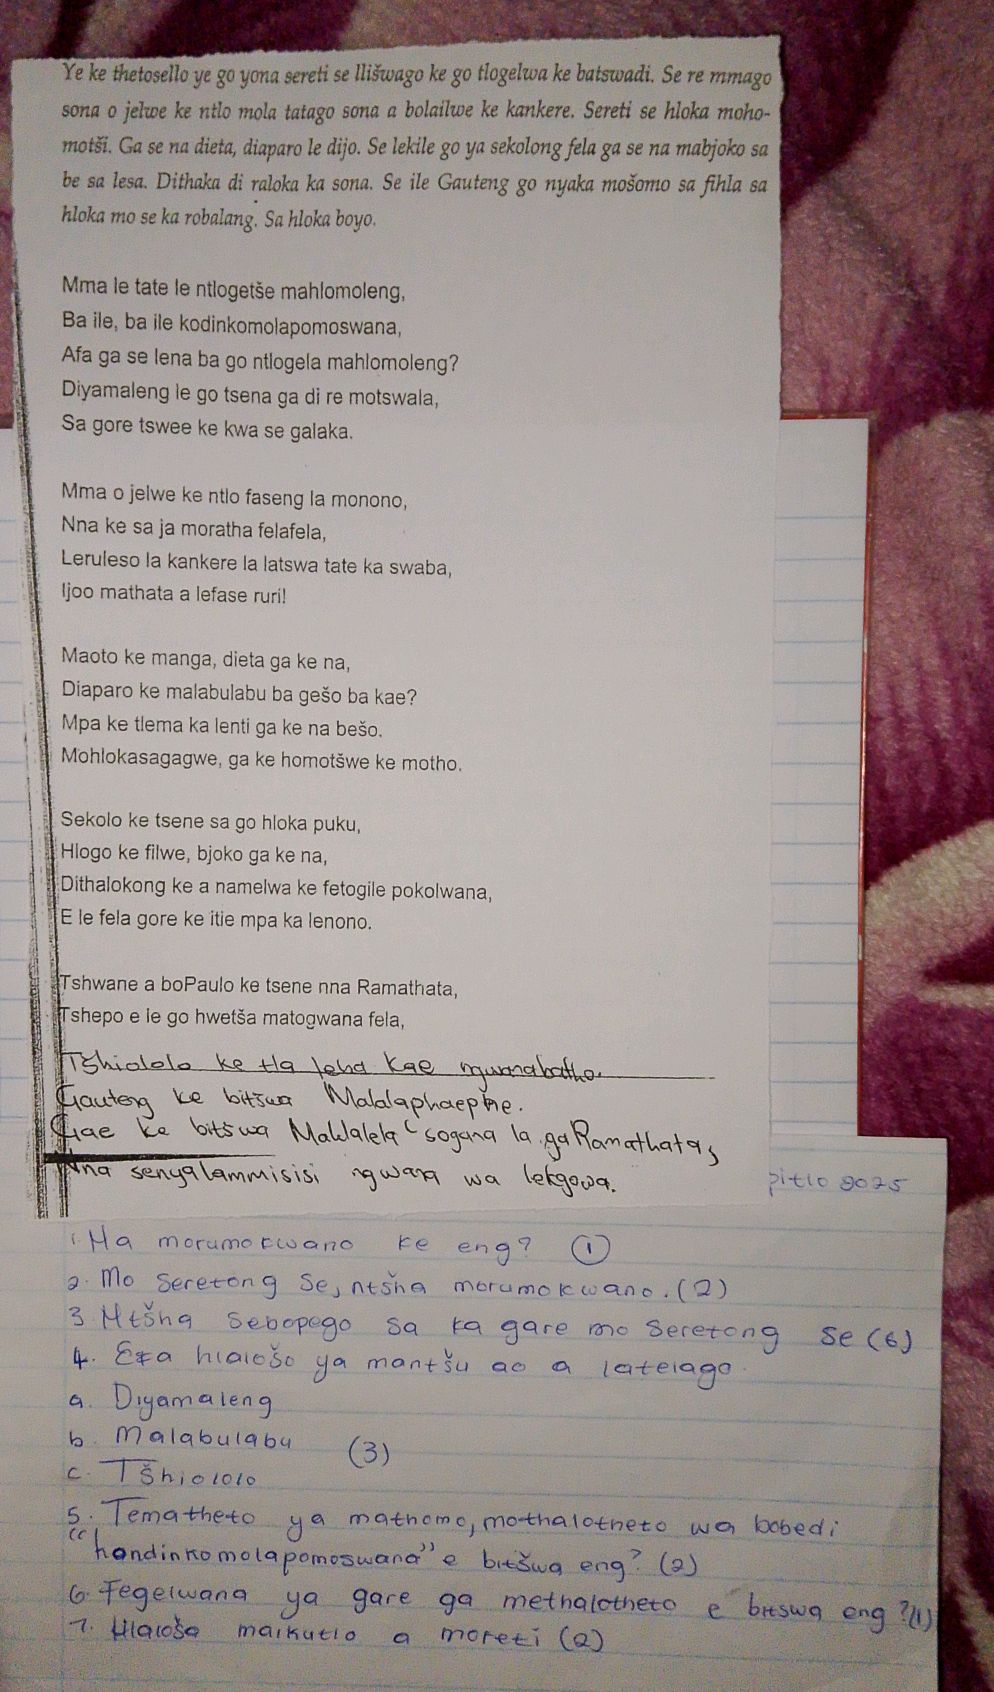 Ye ke thetosello ye go yona sereti se llišwago ke go tlogelwa ke batswadi. Se re mmago
sona o jelwe ke ntlo mola tatago sona a bolailwe ke kankere. Sereti se hloka moho-
motši. Ga se na dieta, diaparo le dijo. Se lekile go ya sekolong fela ga se na mabjoko sa
be sa lesa. Dithaka di raloka ka sona. Se ile Gauteng go nyaka mošomo sa fihla sa
hloka mo se ka robalang. Sa hloka boyo.
Mma le tate le ntlogetše mahlomoleng,
Ba ile, ba ile kodinkomolapomoswana,
Afa ga se lena ba go ntlogela mahlomoleng?
Diyamaleng le go tsena ga di re motswala,
Sa gore tswee ke kwa se galaka.
Mma o jelwe ke ntlo faseng la monono,
Nna ke sa ja moratha felafela,
Leruleso la kankere la latswa tate ka swaba,
Ijoo mathata a lefase ruri!
Maoto ke manga, dieta ga ke na,
Diaparo ke malabulabu ba gešo ba kae?
Mpa ke tlema ka lenti ga ke na bešo.
Mohlokasagagwe, ga ke homotšwe ke motho.
Sekolo ke tsene sa go hloka puku,
Hlogo ke filwe, bjoko ga ke na,
Dithalokong ke a namelwa ke fetogile pokolwana,
E le fela gore ke itie mpa ka lenono.
Tshwane a boPaulo ke tsene nna Ramathata,
Tshepo e le go hwetša matogwana fela,
Tšhiololo ke tla leba kae ngwanabatho.
Gauteng ke bitšwa Malalaphaephe.
Gae ke bitšwa Mahlalela sogana la ga Ramathata,
Nna senyalammisisi ngwana wa lekgowa.
2025
1. Na morumokwano ke eng? (1)
2. Mo seretong se, ntšha morumokwano. (2)
3 Ntšha Sebopego sa ka gare mo Seretong se (6)
4. Efa hlalošo ya mantšu ao a latelago.
a. Diyamaleng
b. Malabulabu (3)
c. Tšhiololo
5. Tematheto ya mathomo, mothalotheto wa bobedi
"hondinkomolapomoswana" e bitšwa eng? (2)
6. Fegelwana ya gare ga methalotheto e bitswa eng? (1)
7. Hlaloša maikutlo a moreti (2)